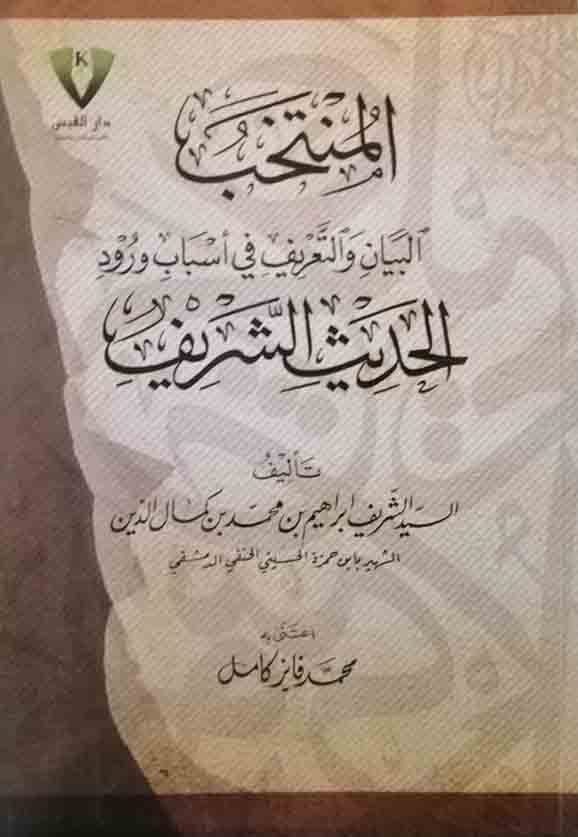 K
دار القبس
المُنْتَخَبُ
البَيَانِ وَالتَّعْرِيفِ فِي أَسْبَابِ وُرُوْدِ
الحَدِيْثِ الشَّرِيْفِ
تَأليْفُ
السيّد الشّريف ابراهيم بن محمّد بن كمال الدّين
الشهير بابن حمزة الحسيني الحنفي الدمشقي
اعتَنى به
محمّد فايز كامل